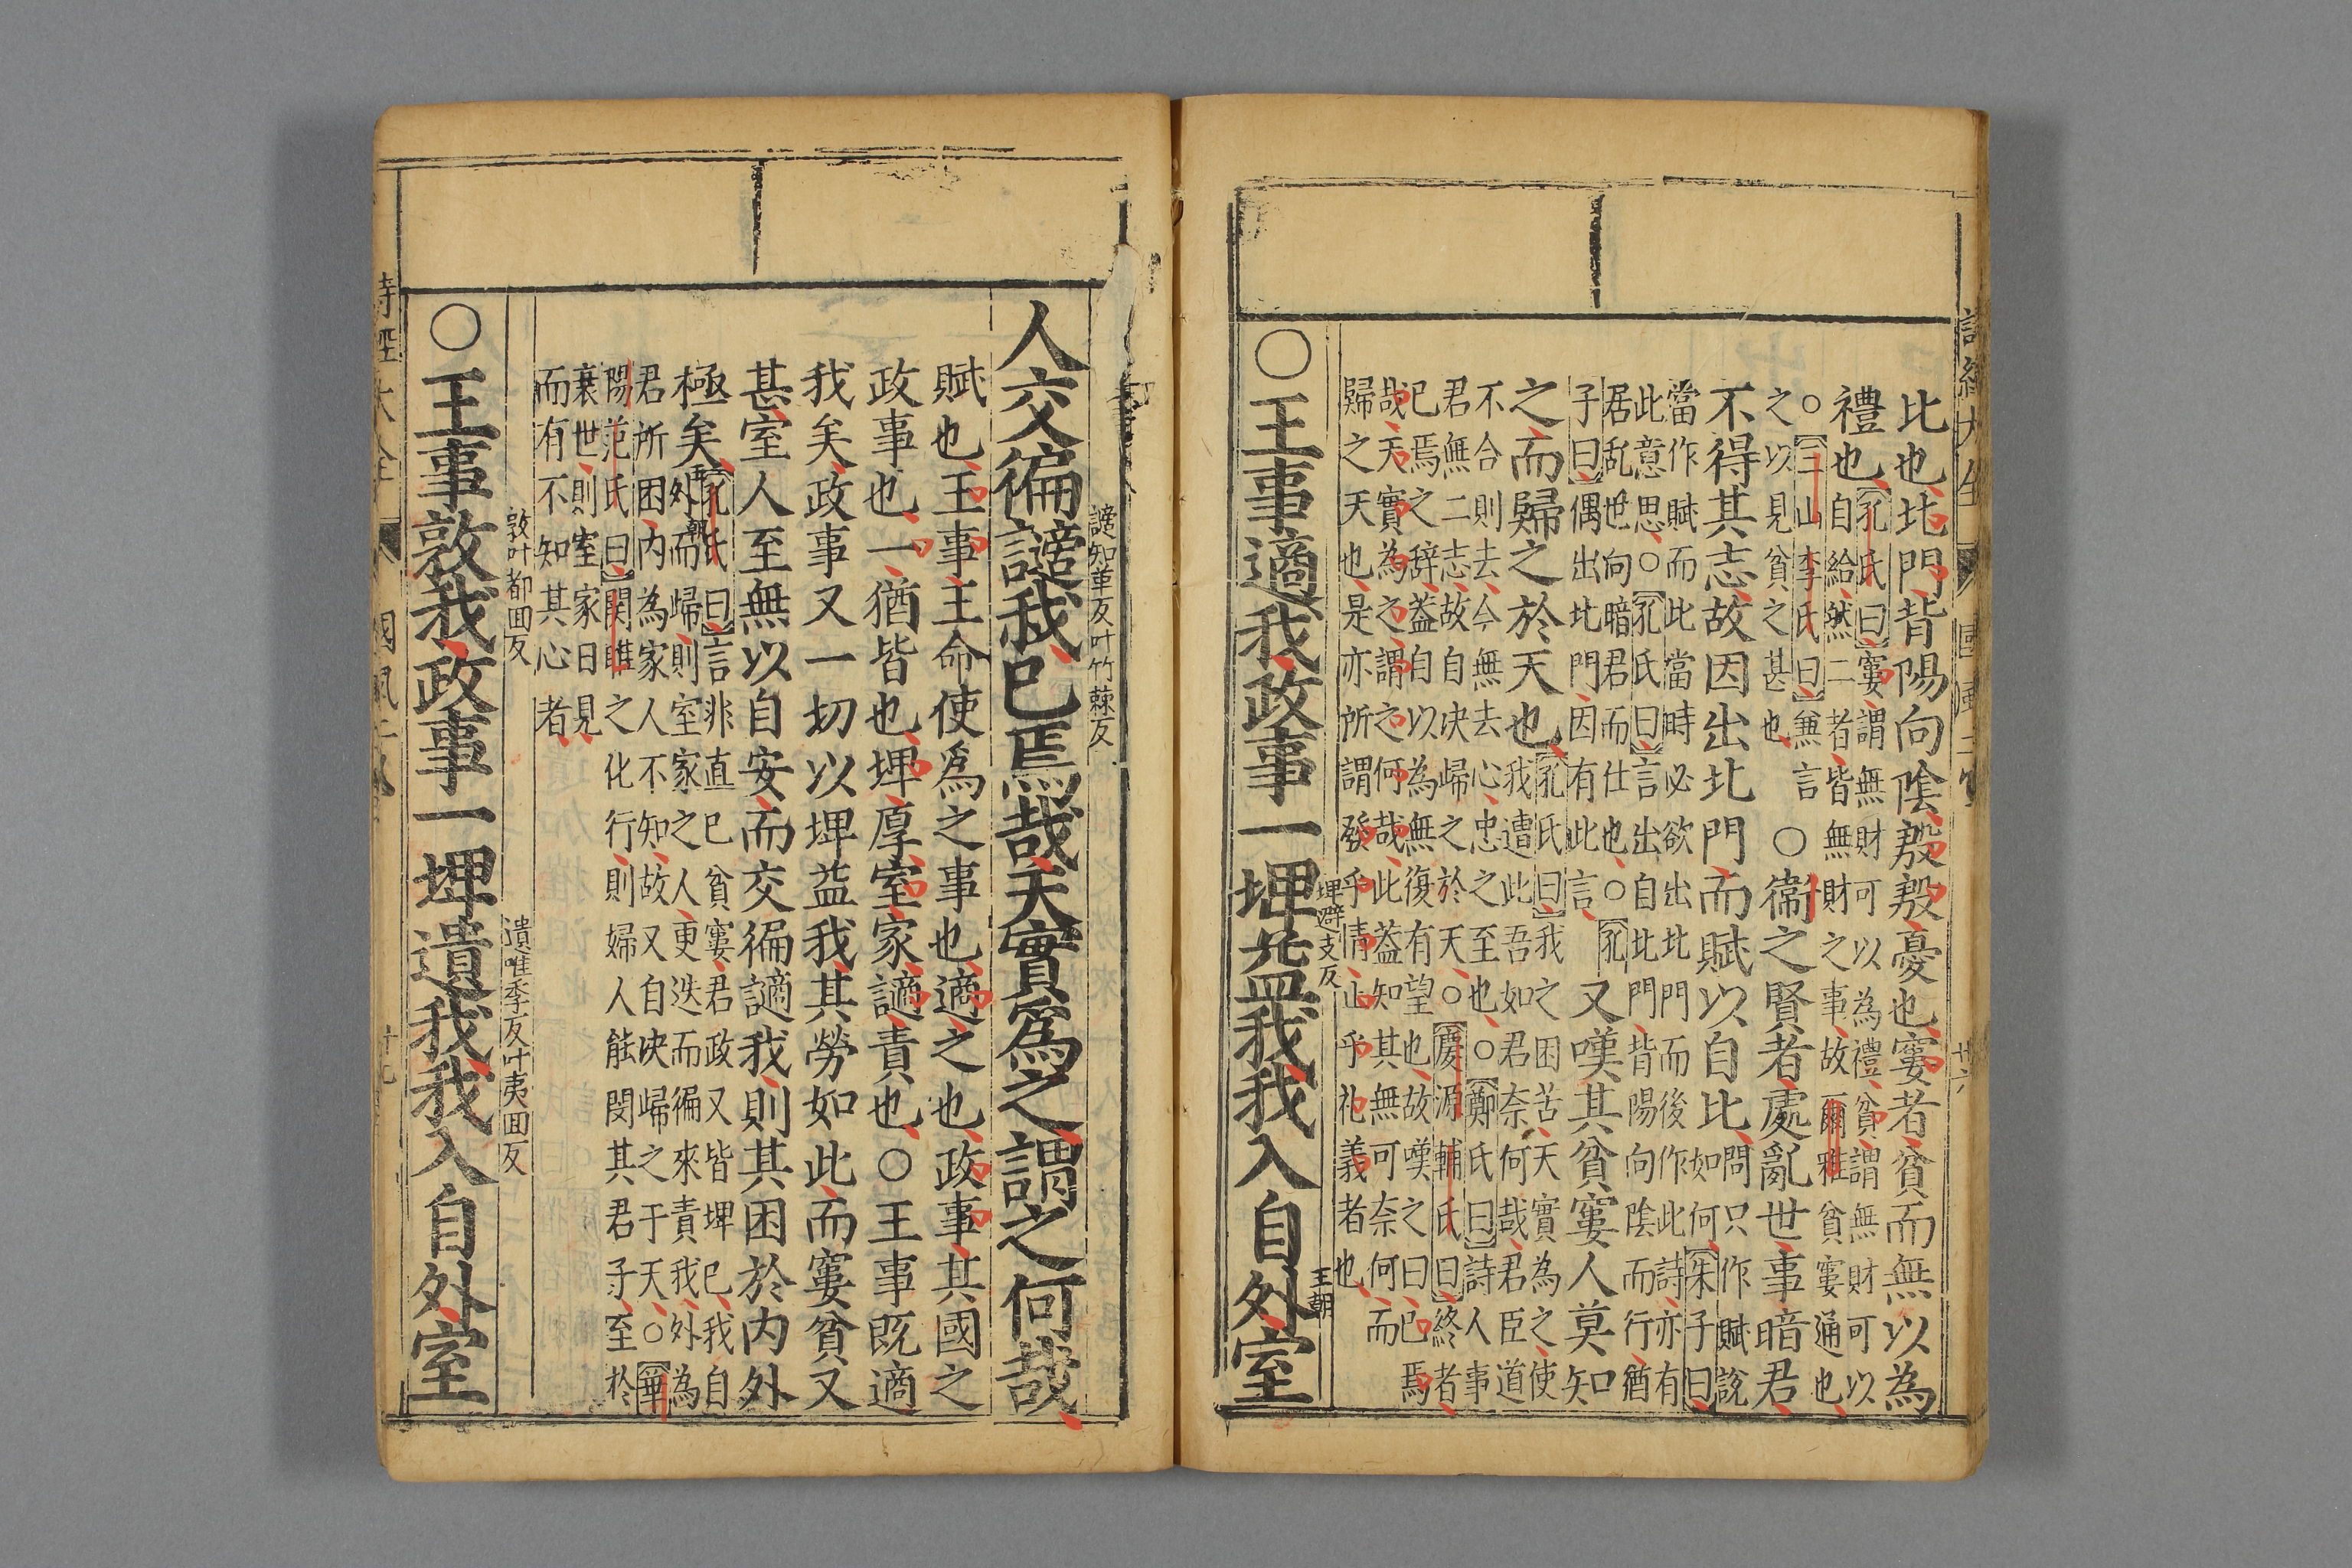 比也北門背陽向陰殷殷憂也窶者貧而無以為
禮也
孔氏曰窶謂無財可以為禮貧謂無財可以
自給然二者皆無財之事故爾雅貧窶通也
○三山李氏曰兼言
之以見貧之甚也
○衛之賢者處亂世事暗君
不得其志故因出北門而賦以自比
問只作賦說
如何朱子曰
當作賦而此當時必欲出北門而後作此詩亦有
此意思○孔氏曰言出自北門皆陽向陰而行猶
居乱世向暗君而仕也○孔
子曰偶出北門因有此言
又嘆其貧窶人莫知
之而歸之於天也
孔氏曰我之困苦天實為之使
我遭此吾如君奈何哉君臣道
不合則去今無去心忠之至也○鄭氏曰詩人事
君無二志故自决歸之於天○慶源輔氏曰終者
已焉之辞葢自以為無復有望也故嘆之曰已焉
哉天實為之謂之何哉此葢知其無可奈何而
歸之天也是亦所謂發乎情止乎礼義者也
埤避支反 王朝
○王事適我政事一埤益我我入自外室
讁知革反叶竹棘反
人交徧讁我已焉哉天實爲之謂之何哉
賦也王事王命使爲之事也適之也政事其國之
政事也一猶皆也埤厚室家讁責也○王事既適
我矣政事又一切以埤益我其勞如此而窶貧又
甚室人至無以自安而交徧讁我則其困於内外
極矣
孔氏曰言非直已貧窶君政又皆埤已我自
外而歸則室家之人更迭而徧來責我外為
君所困内為家人不知故又自决歸之于天○華
陽范氏曰関雎之化行則婦人能閔其君子至於
衰世則室家日見
而有不知其心者
敦叶都回反 遺唯季反叶夷回反
○王事敦我政事一埤遺我我入自外室